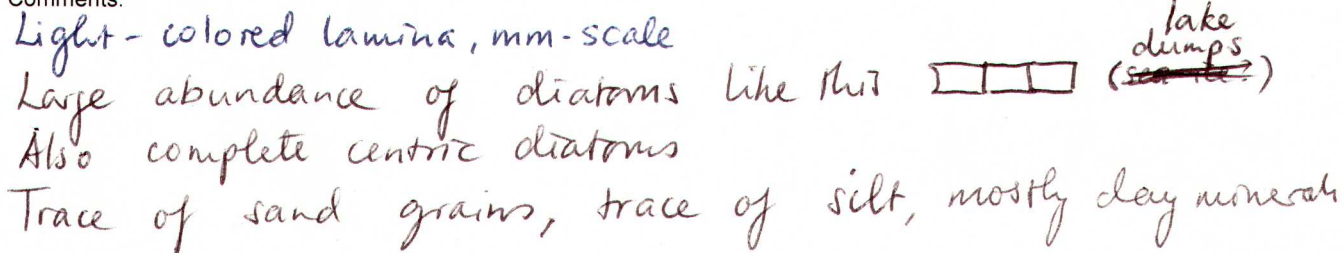 Comments:
Light-colored lamina, mm-scale
Large abundance of diatoms like this (lake dumps)
Also complete centric diatoms
Trace of sand grains, trace of silt, mostly clay minerals